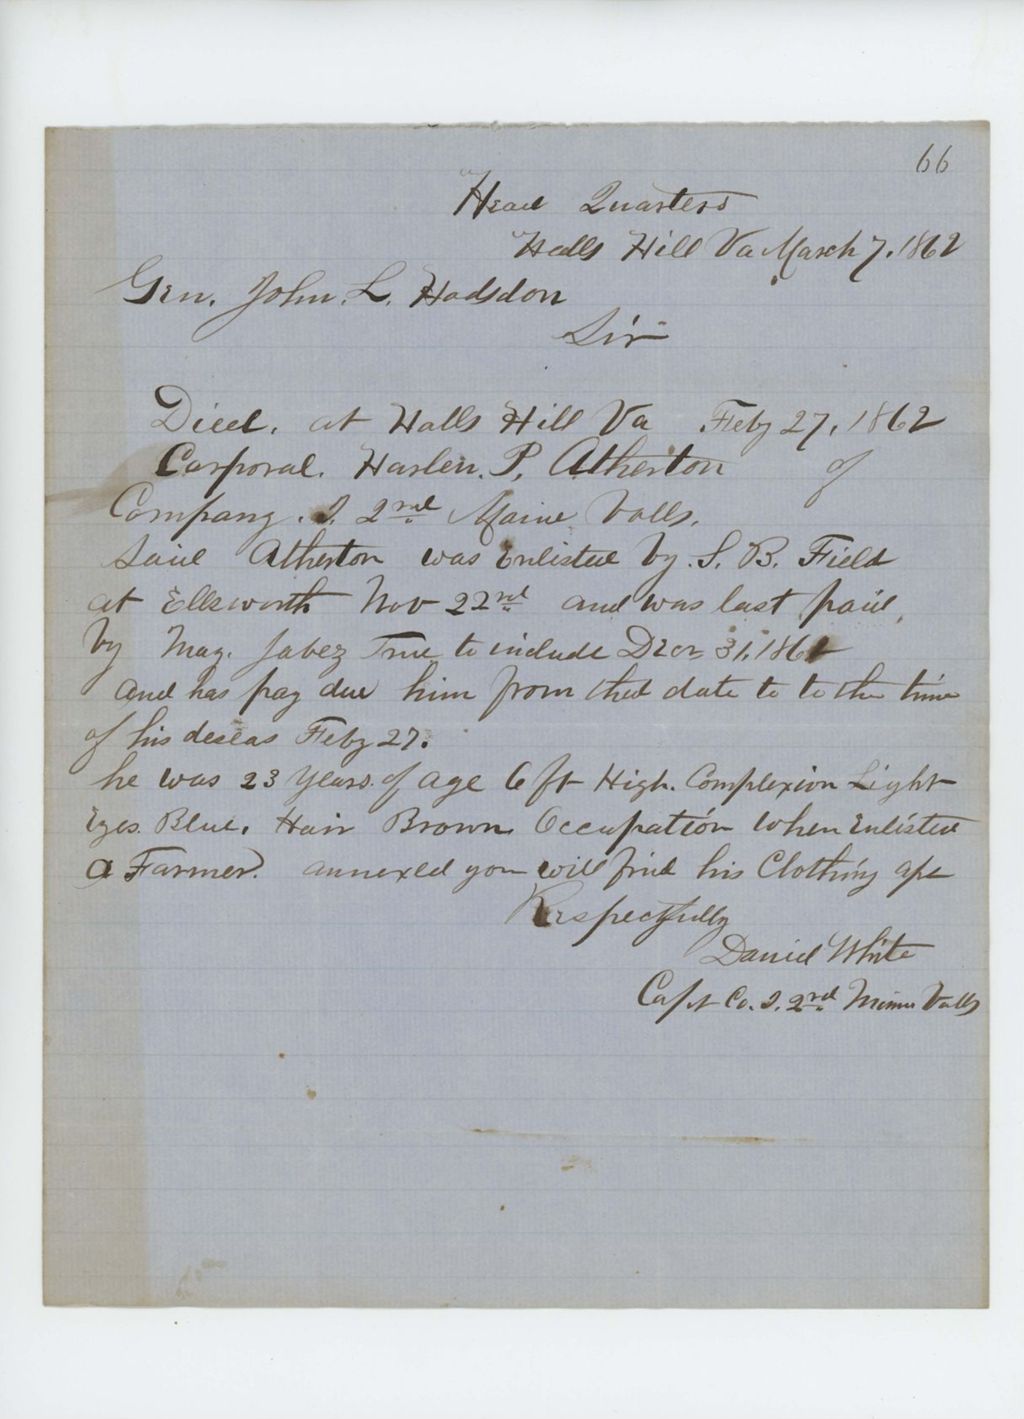 66
Head Quarters
Halls Hill Va March 7. 1862
Gen. John. L. Hodsdon
Sir
Died. at Halls Hill Va Feby 27, 1862
Corporal. Harlen. P. Atherton of
Company. I. 2nd Maine Volls.
Said Atherton was Enlisted by. S. B. Field
at Ellsworth Nov 22nd and was last paid,
by Maj. Jabez True to include Decm 31, 186
and has pay due him from that date to to the time
of his deseas Feby 27.
he was 23 years of age 6 ft High. Complexion Light
Eyes. Blue. Hair Brown. Occupation When Enlisted
a Farmer. annexed you will find his Clothing apc
Respectfully
Daniel White
Capt Co. I. 2nd Maine Volls